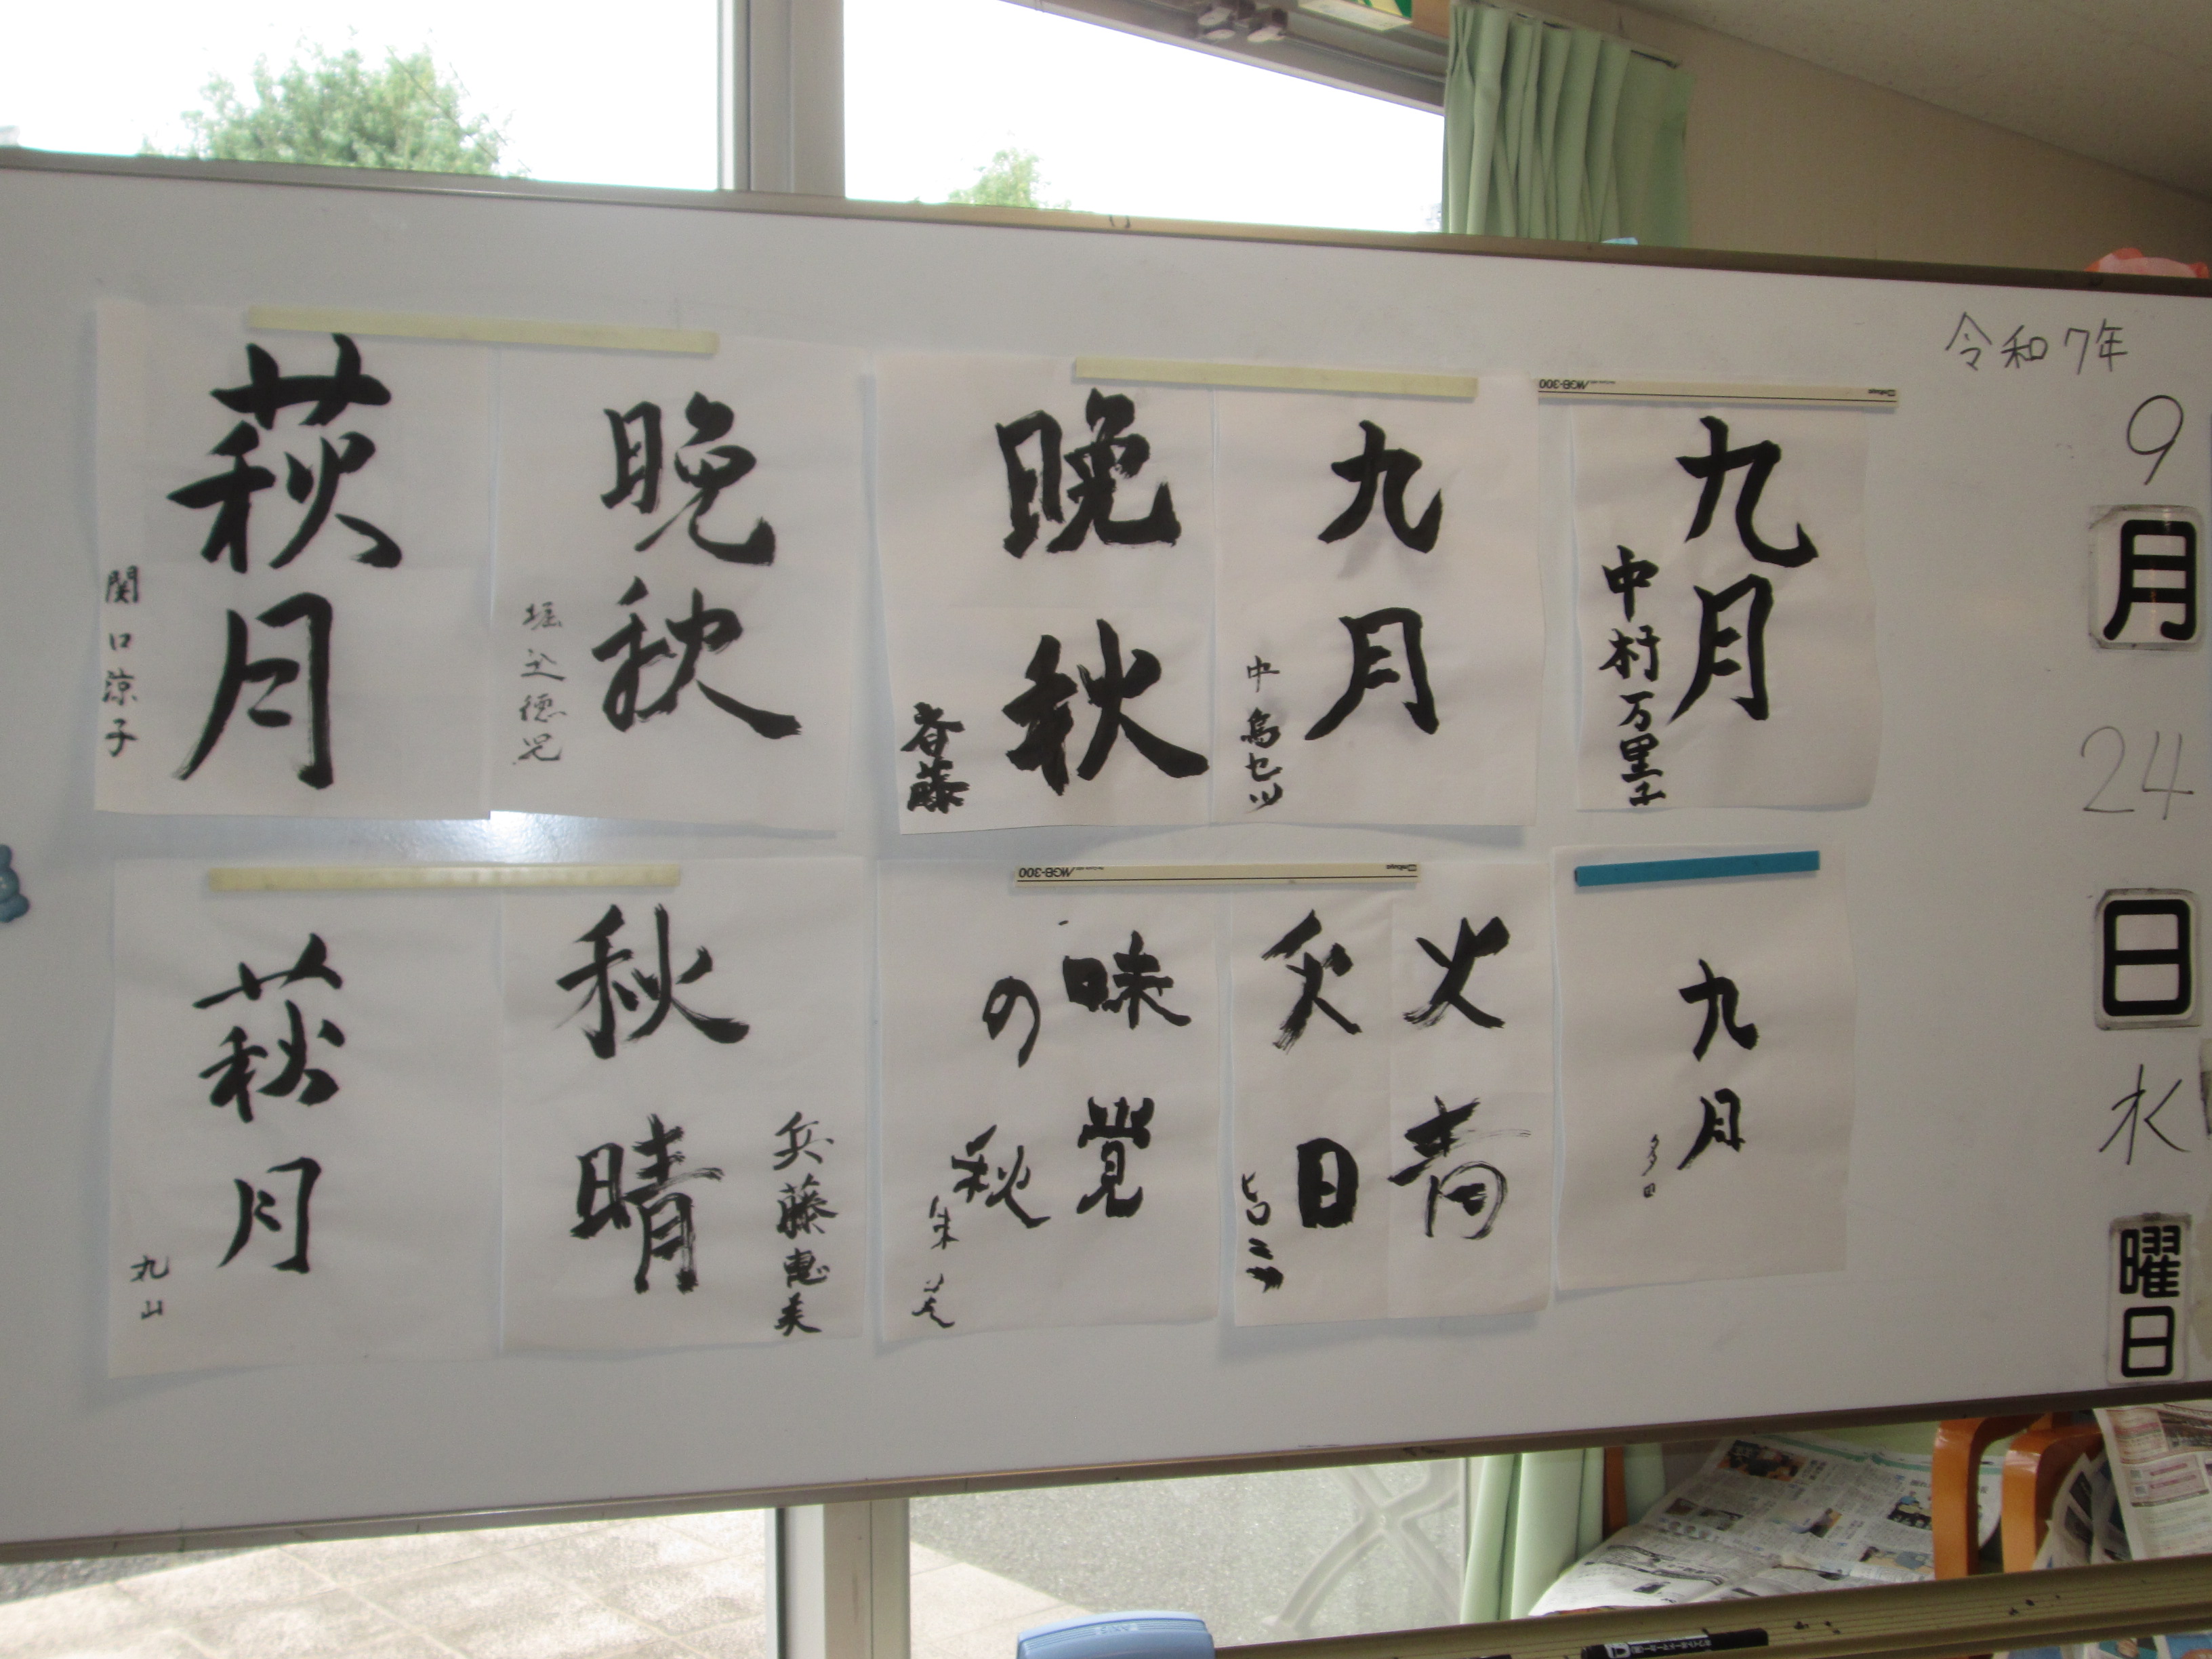 令和7年
9
月
24
日
水
曜
日
九月
中村万里子
九月
中島セツ
晩秋
斎藤
晩秋
堀込徳児
萩月
関口涼子
九月
多田
火青
火日
ヒロミ
味覚
の秋
朱美
秋晴
兵藤恵美
萩月
丸山
MGB-300
MGB-300